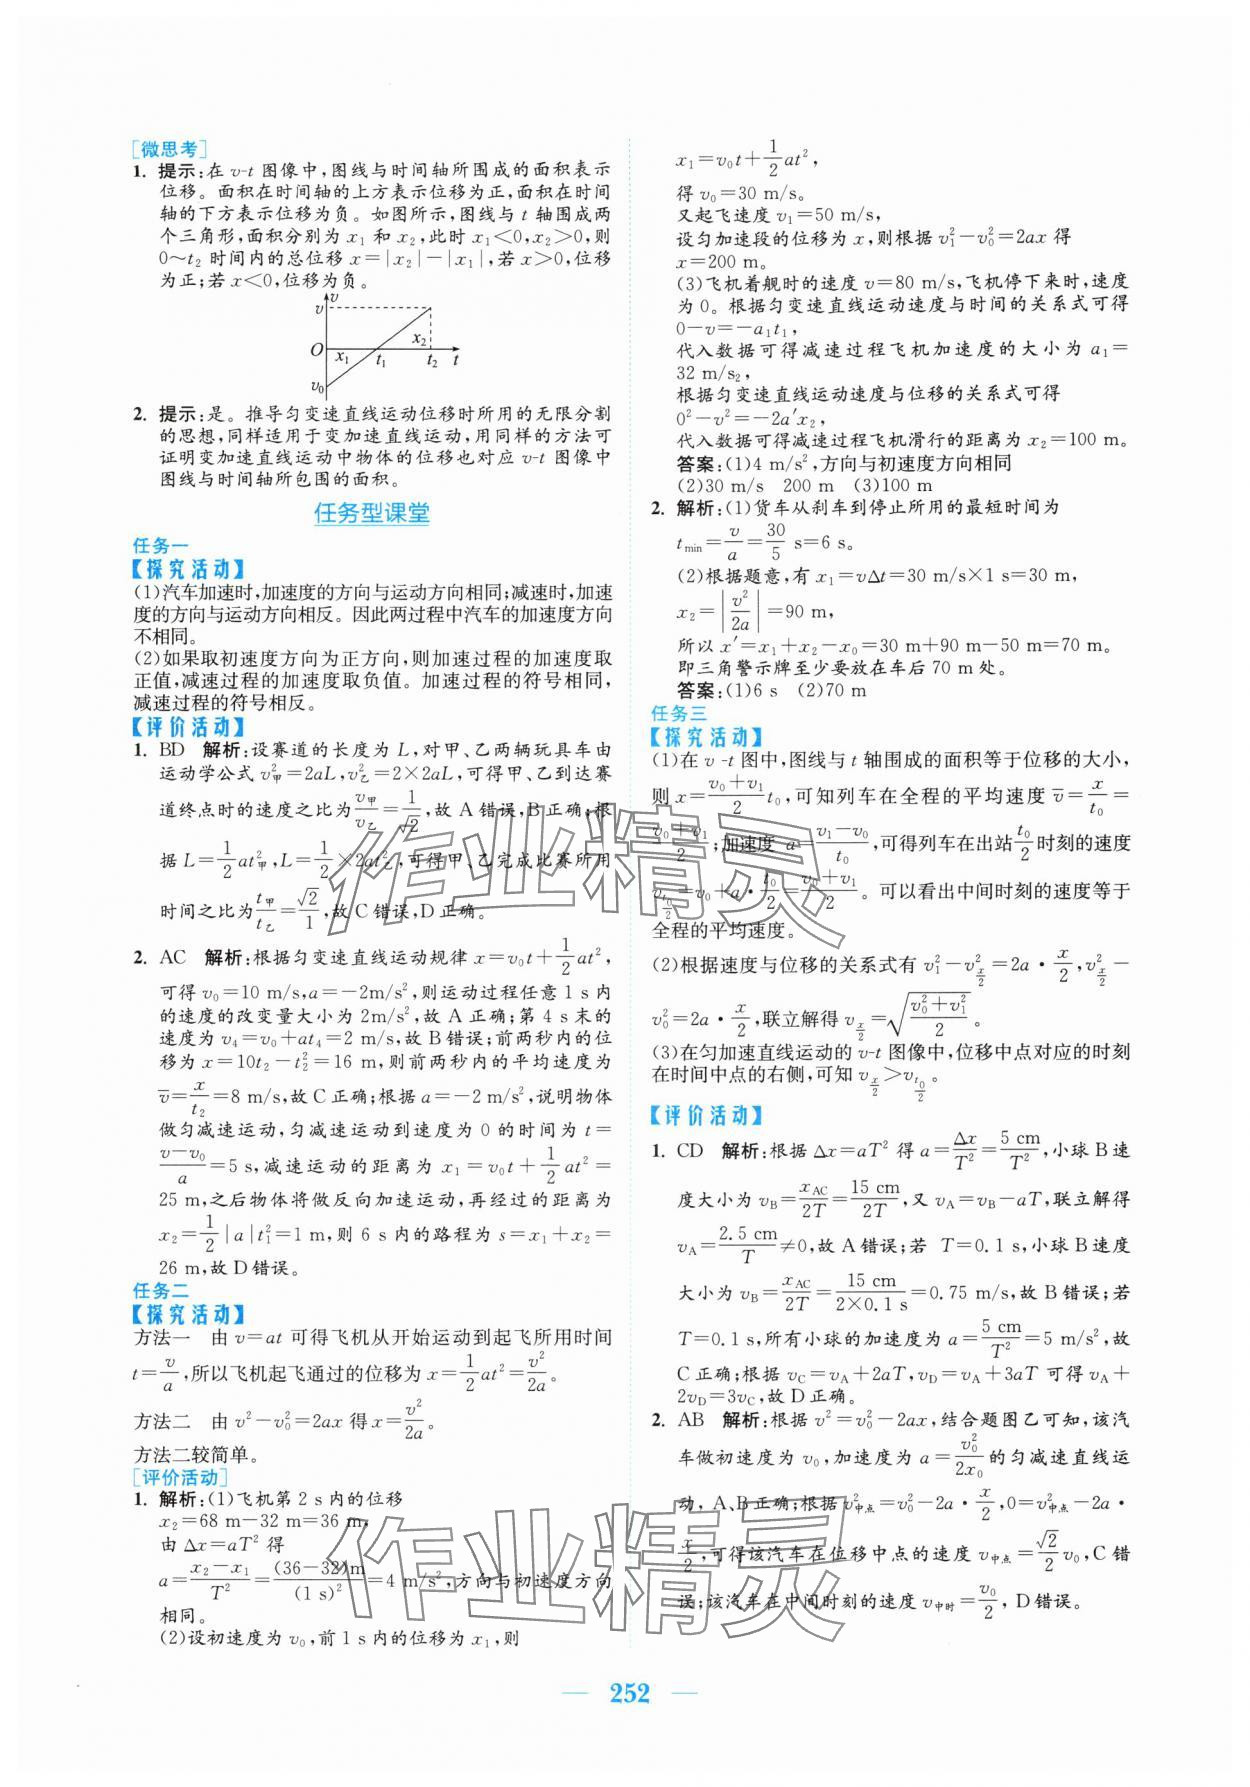 [微思考]
1. 提示:在 v-t 图像中,图线与时间轴所围成的面积表示
位移。面积在时间轴的上方表示位移为正,面积在时间
轴的下方表示位移为负。如图所示,图线与 t 轴围成两
个三角形,面积分别为 x₁ 和 x₂,此时 x₁<0,x₂>0,则
0~t₂ 时间内的总位移 x=|x₂|-|x₁|,若 x>0,位移
为正;若 x<0,位移为负。
v
v
x₂
O x₁ t₁ t₂ t
v₀
2. 提示:是。推导匀变速直线运动位移时所用的无限分割
的思想,同样适用于变加速直线运动,用同样的方法可
证明变加速直线运动中物体的位移也对应 v-t 图像中
图线与时间轴所包围的面积。
任务型课堂
任务一
【探究活动】
(1)汽车加速时,加速度的方向与运动方向相同;减速时,加速
度的方向与运动方向相反。因此两过程中汽车的加速度方向
不相同。
(2)如果取初速度方向为正方向,则加速过程的加速度取
正值,减速过程的加速度取负值。加速过程的符号相同,
减速过程的符号相反。
【评价活动】
1. BD 解析:设赛道的长度为 L,对甲、乙两辆玩具车由
运动学公式 v²甲=2aL,v²乙=2×2aL,可得甲、乙到达赛
道终点时的速度之比为 v甲/v乙=1/√2,故 A 错误,B 正确;根
据 L=1/2 at²甲,L=1/2×2at²乙,可得甲、乙完成此赛所用
时间之比为 t甲/t乙=√2/1,故 C 错误,D 正确。
2. AC 解析:根据匀变速直线运动规律 x=v₀t+1/2 at²,
可得 v₀=10 m/s,a=-2m/s²,则运动过程任意 1 s 内
的速度的改变量大小为 2m/s²,故 A 正确;第 4 s 末的
速度为 v₄=v₀+at₄=2 m/s,故 B 错误;前两秒内的位
移为 x=10t₂-t₂²=16 m,则前两秒内的平均速度为
v̄=x/t₂=8 m/s,故 C 正确;根据 a=-2 m/s²,说明物体
做匀减速运动,匀减速运动到速度为 0 的时间为 t=
(v-v₀)/a=5 s,减速运动的距离为 x₁=v₀t+1/2 at²=
25 m,之后物体将做反向加速运动,再经过的距离为
x₂=1/2|a|t₁²=1 m,则 6 s 内的路程为 s=x₁+x₂=
26 m,故 D 错误。
任务二
【探究活动】
方法一 由 v=at 可得飞机从开始运动到起飞所用时间
t=v/a,所以飞机起飞通过的位移为 x=1/2 at²=v²/2a。
方法二 由 v²-v₀²=2ax 得 x=v²/2a。
方法二较简单。
[评价活动]
1. 解析:(1)飞机第 2 s 内的位移
x₂=68 m-32 m=36 m,
由 Δx=aT² 得
a=(x₂-x₁)/T²=(36-32)m/(1 s)²=4 m/s²,方向与初速度方向
相同。
(2)设初速度为 v₀,前 1 s 内的位移为 x₁,则
x₁=v₀t+1/2 at²,
得 v₀=30 m/s。
又起飞速度 v₁=50 m/s,
设匀加速段的位移为 x,则根据 v₁²-v₀²=2ax 得
x=200 m。
(3)飞机着舰时的速度 v=80 m/s,飞机停下来时,速度
为 0。根据匀变速直线运动速度与时间的关系式可得
0-v=-a₁t₁,
代入数据可得减速过程飞机加速度的大小为 a₁=
32 m/s₂,
根据匀变速直线运动速度与位移的关系式可得
0²-v²=-2a′x₂,
代入数据可得减速过程飞机滑行的距离为 x₂=100 m。
答案:(1)4 m/s²,方向与初速度方向相同
(2)30 m/s 200 m (3)100 m
2. 解析:(1)货车从刹车到停止所用的最短时间为
t min=v/a=30/5 s=6 s。
(2)根据题意,有 x₁=vΔt=30 m/s×1 s=30 m,
x₂=|v²/2a|=90 m,
所以 x′=x₁+x₂-x₀=30 m+90 m-50 m=70 m。
即三角警示牌至少要放在车后 70 m 处。
答案:(1)6 s (2)70 m
任务三
【探究活动】
(1)在 v-t 图中,图线与 t 轴围成的面积等于位移的大小,
则 x=(v₀+v₁)/2 t₀,可知列车在全程的平均速度 v̄=x/t₀=
(v₀+v₁)/2;加速度 a=(v₁-v₀)/t₀,可得列车在出站 t₀/2 时刻的速度
v_(t₀/2)=v₀+a·t₀/2=(v₀+v₁)/2。可以看出中间时刻的速度等于
全程的平均速度。
(2)根据速度与位移的关系式有 v₁²-v²_(x/2)=2a·x/2,v²_(x/2)-
v₀²=2a·x/2,联立解得 v_(x/2)=√((v₀²+v₁²)/2)。
(3)在匀加速直线运动的 v-t 图像中,位移中点对应的时刻
在时间中点的右侧,可知 v_(x/2)>v_(t₀/2)。
【评价活动】
1. CD 解析:根据 Δx=aT² 得 a=Δx/T²=5 cm/T²,小球 B 速
度大小为 v_B=x_AC/2T=15 cm/2T,又 v_A=v_B-aT,联立解得
v_A=2.5 cm/T≠0,故 A 错误;若 T=0.1 s,小球 B 速度
大小为 v_B=x_AC/2T=15 cm/(2×0.1 s)=0.75 m/s,故 B 错误;若
T=0.1 s,所有小球的加速度为 a=5 cm/T²=5 m/s²,故
C 正确;根据 v_C=v_A+2aT,v_D=v_A+3aT 可得 v_A+
2v_D=3v_C,故 D 正确。
2. AB 解析:根据 v²=v₀²-2ax,结合题图乙可知,该汽
车做初速度为 v₀,加速度为 a=v₀²/2x₀ 的匀减速直线运
动,A、B 正确;根据 v²中点=v₀²-2a·x/2,0=v²中点-2a·
x/2,可得该汽车在位移中点的速度 v中点=√2/2 v₀,C 错
误;该汽车在中间时刻的速度 v中时=v₀/2,D 错误。
作业精灵
作业精灵
252